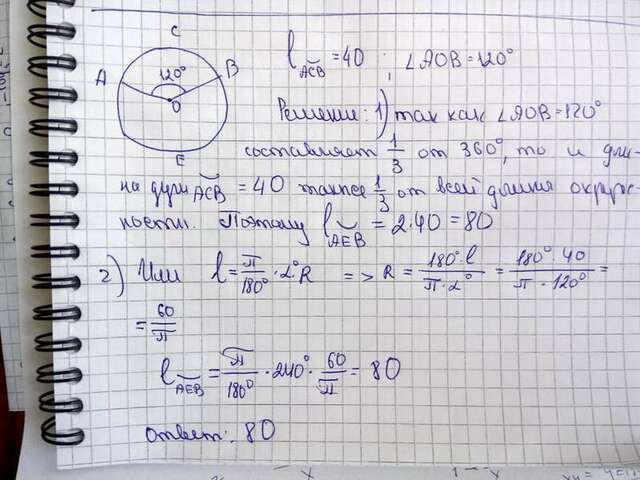 C
A 120° B
O
E
l ACB = 40 ; ∠AOB = 120°
Решение: 1) так как ∠AOB = 120°
составляет 1/3 от 360°, то и дли-
на дуги ACB = 40 также 1/3 от всей длины окруж-
ности. Поэтому l AEB = 2·40 = 80
2) Или l = π/180° · α° R => R = 180°·l / π·α° = 180°·40 / π·120° =
= 60/π
l AEB = π/180° · 240° · 60/π = 80
ответ: 80